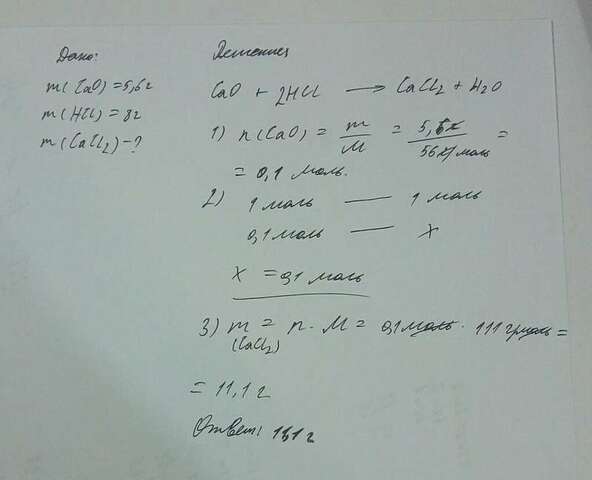 Дано:
m(CaO) = 5,6г
m(HCl) = 8г
m(CaCl₂) - ?
Решение
CaO + 2HCl → CaCl₂ + H₂O
1) n(CaO) = m/M = 5,6г/56г/моль =
= 0,1 моль.
2) 1 моль — 1 моль
0,1 моль — x
x = 0,1 моль
3) m = n · M = 0,1 моль · 111 г/моль =
(CaCl₂)
= 11,1 г
Ответ: 11,1 г